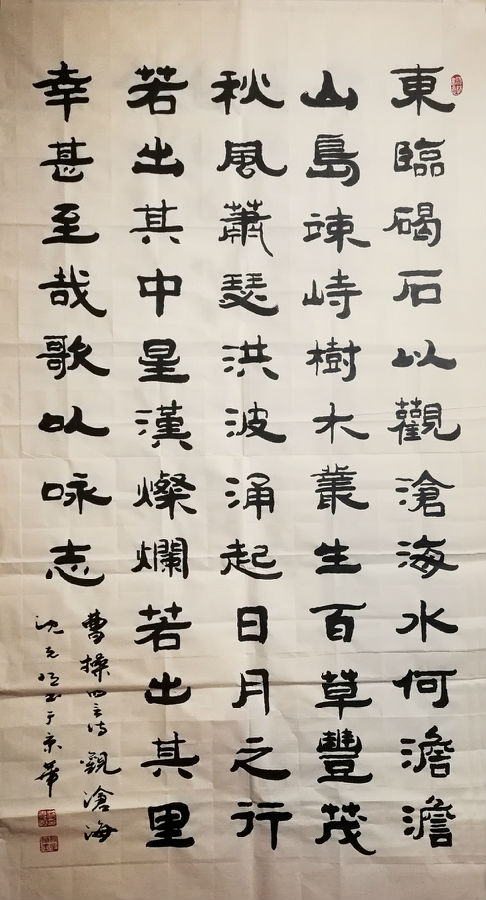 東臨碣石以觀滄海水何澹澹
山島竦峙樹木叢生百草豐茂
秋風蕭瑟洪波涌起日月之行
若出其中星漢燦爛若出其里
幸甚至哉歌以咏志
曹操四言诗觀滄海
书于京華